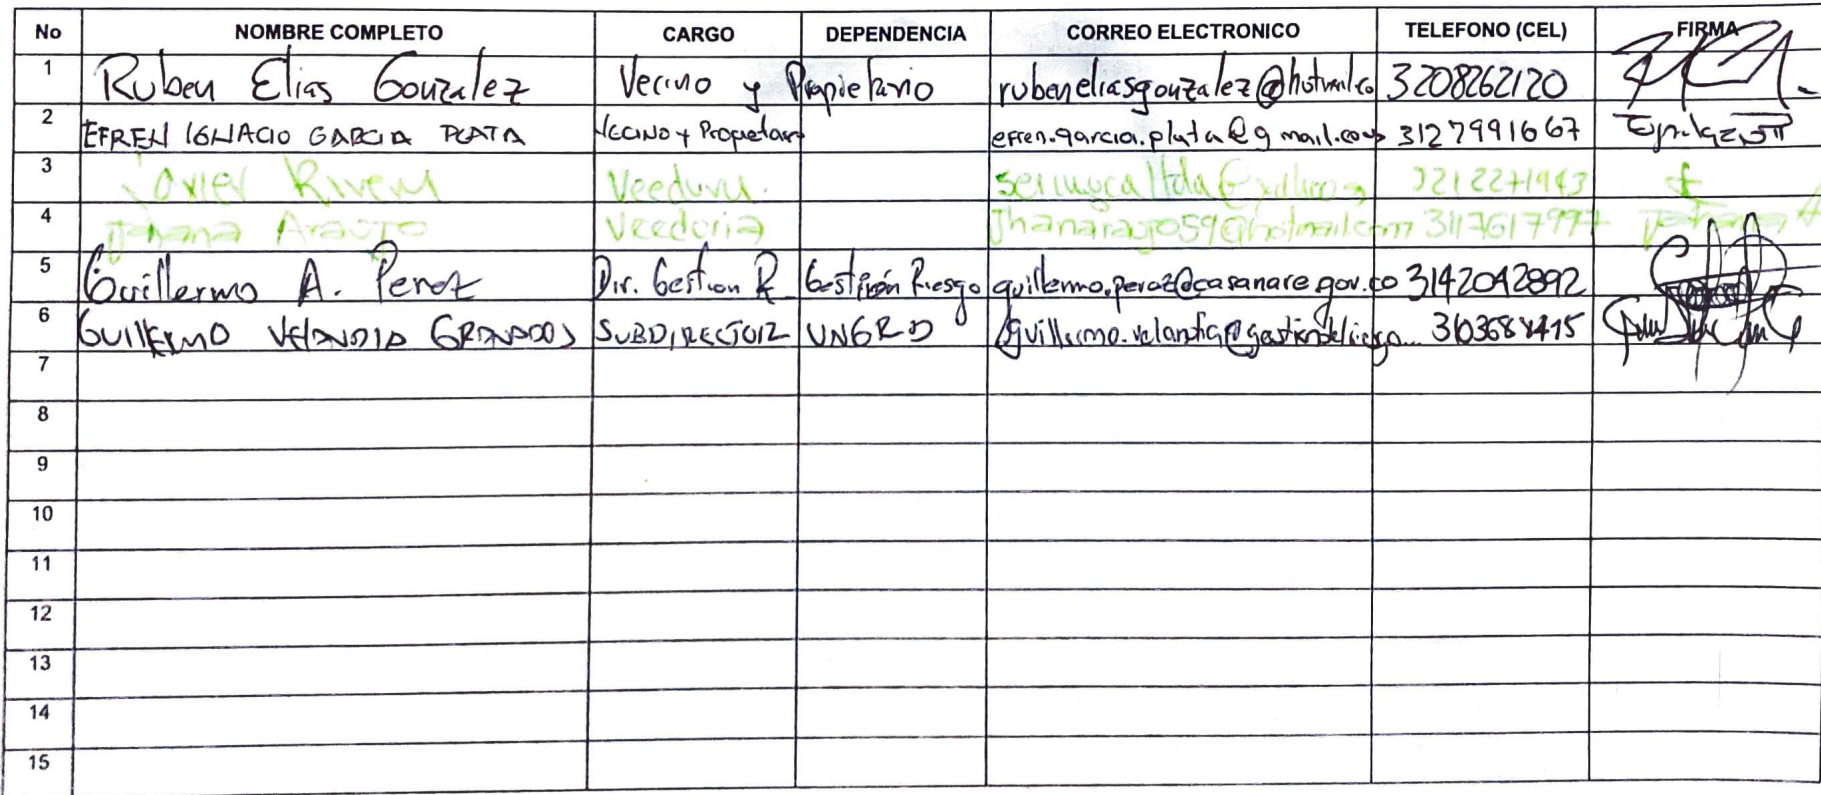 No NOMBRE COMPLETO CARGO DEPENDENCIA CORREO ELECTRONICO TELEFONO (CEL) FIRMA
1 Ruben Elias Gonzalez Vecino y Propietario rubeneliasgonzalez@hotmail.co 3208262120
2 EFREN IGNACIO GARCIA PLATA VECINO y Propietario efren.garcia.plata@gmail.com 3127991667
3 Javier Rivera Veeduria. 3212271943
4 Jhana Araujo Veeduria 3117617997
5 Guillermo A. Perez Dir. Gestion R Gestión Riesgo guillermo.perez@casanare.gov.co 3142042892
6 GUILLERMO VELANDIA GRANADOS SUBDIRECTOR UNGRD guillermo.velandia@gestiondelriesgo...
7
8
9
10
11
12
13
14
15